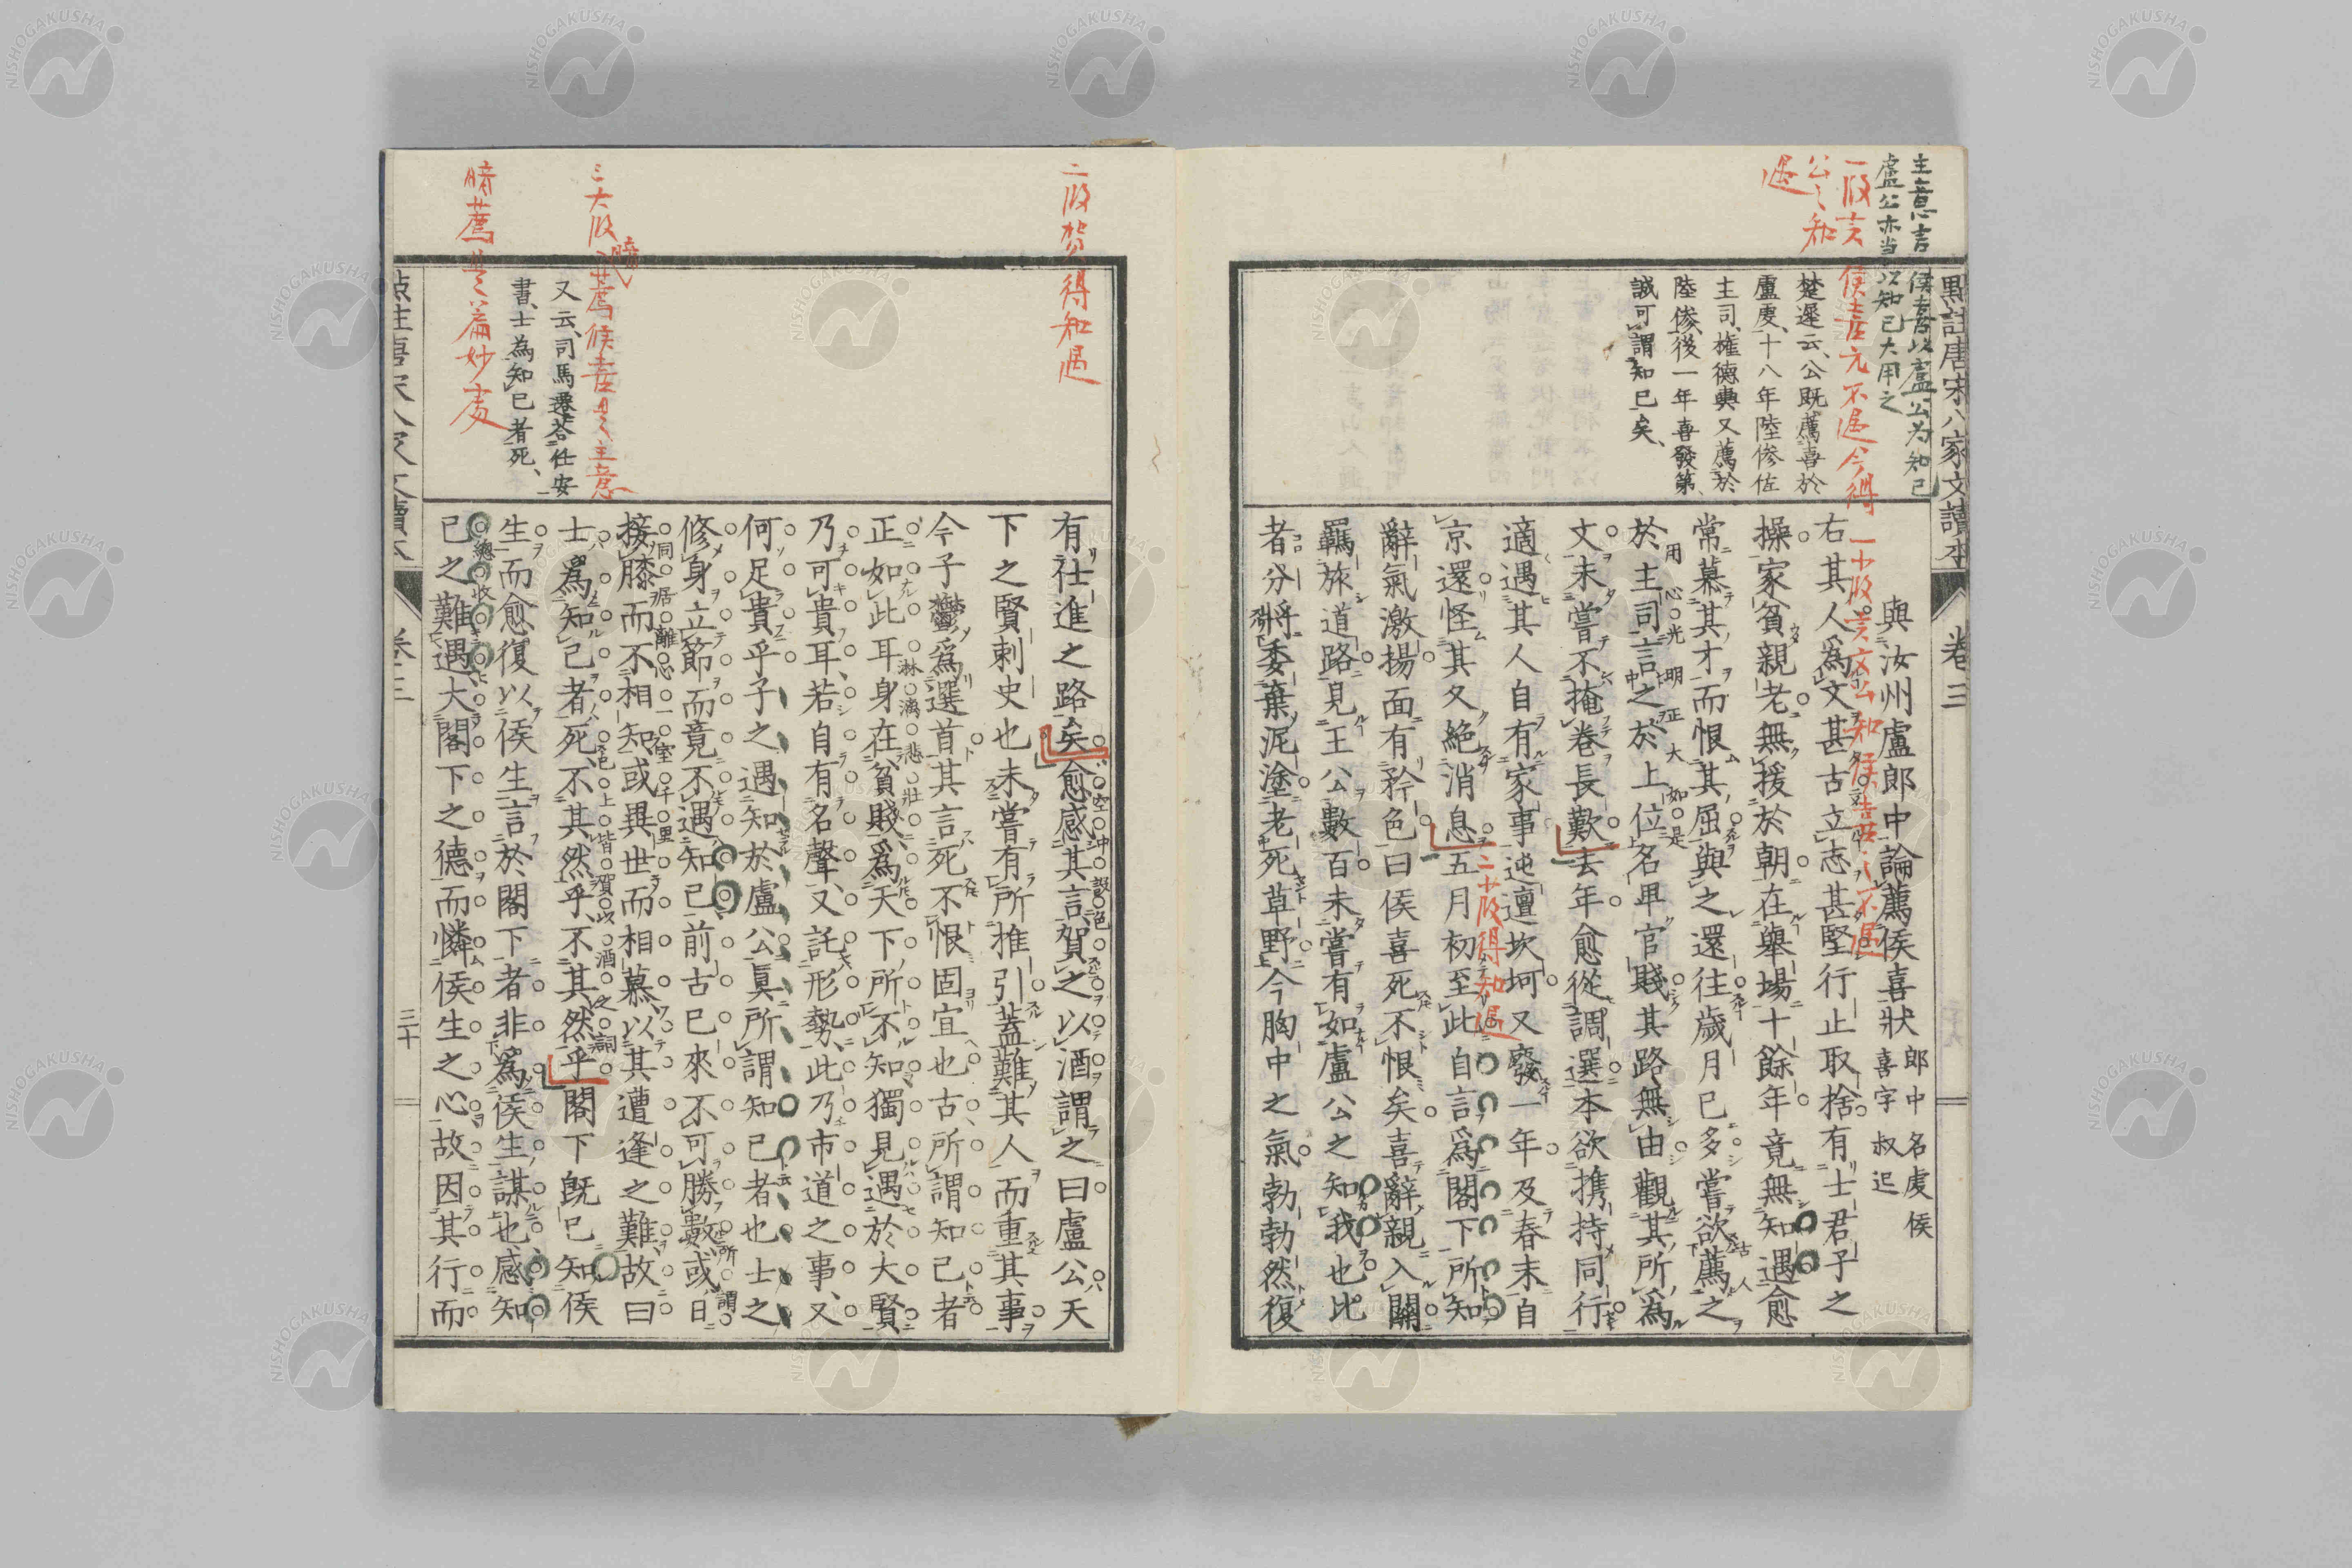 主意言侯喜以盧公为知己
盧公亦当以知己大用之
一段言侯喜元不遇今得
公之知
遇
楚遲云、公既薦喜於
盧虔、十八年陸傪佐
主司、權德輿又薦於
陸傪、後一年喜發第、
誠可謂知已矣、
點註唐宋八家文讀本
卷三
一小段言文公知侯喜其人不遇
與汝州盧郎中論薦侯喜狀
郎中名虔侯
喜字叔迟
右其人爲文甚古立志甚堅行止取捨有士君子之
操家貧親老無援於朝在舉場十餘年竟無知遇愈
常慕其才而恨其屈與之還往歲月已多嘗欲薦之
於主司言之於上位名卑官賤其路無由觀其所爲
用心光明正大如是
古人
文未嘗不掩卷長歎去年愈從調選本欲携持同行
適遇其人自有家事迍邅坎坷又廢一年及春末自
二小段得知遇
京還怪其久絶消息五月初至此自言爲閣下所知
辭氣激揚面有矜色曰侯喜死不恨矣喜辭親入關
羈旅道路見王公數百未嘗有如盧公之知我也比
者分將委棄泥塗老死草野今胸中之氣勃勃然復
二段賀得知遇
三大段
薦侯喜是主意
暗薦是篇妙處
又云、司馬遷荅任安
書、士為知已者死、
有仕進之路矣愈感其言賀之以酒謂之曰盧公天
下之賢刺史也未嘗有所推引蓋難其人而重其事
今子鬱爲選首其言死不恨固宜也古所謂知已者
正如此耳身在貧賤爲天下所不知獨見遇於大賢
淋漓悲壯
乃可貴耳、若自有名聲、又託形勢、此乃市道之事、又
何足貴乎子之遇知於盧公眞所謂知已者也士之
修身立節而竟不遇知已前古已來不可勝數或日
所謂
接膝而不相知或異世而相慕以其遭逢之難故曰
同居離心一室千里
士爲知已者死不其然乎不其然乎閣下既已知侯
生而愈復以侯生言於閣下者非爲侯生謀也感知
總收
已之難遇大閣下之德而憐侯生之心故因其行而
卷三
三十